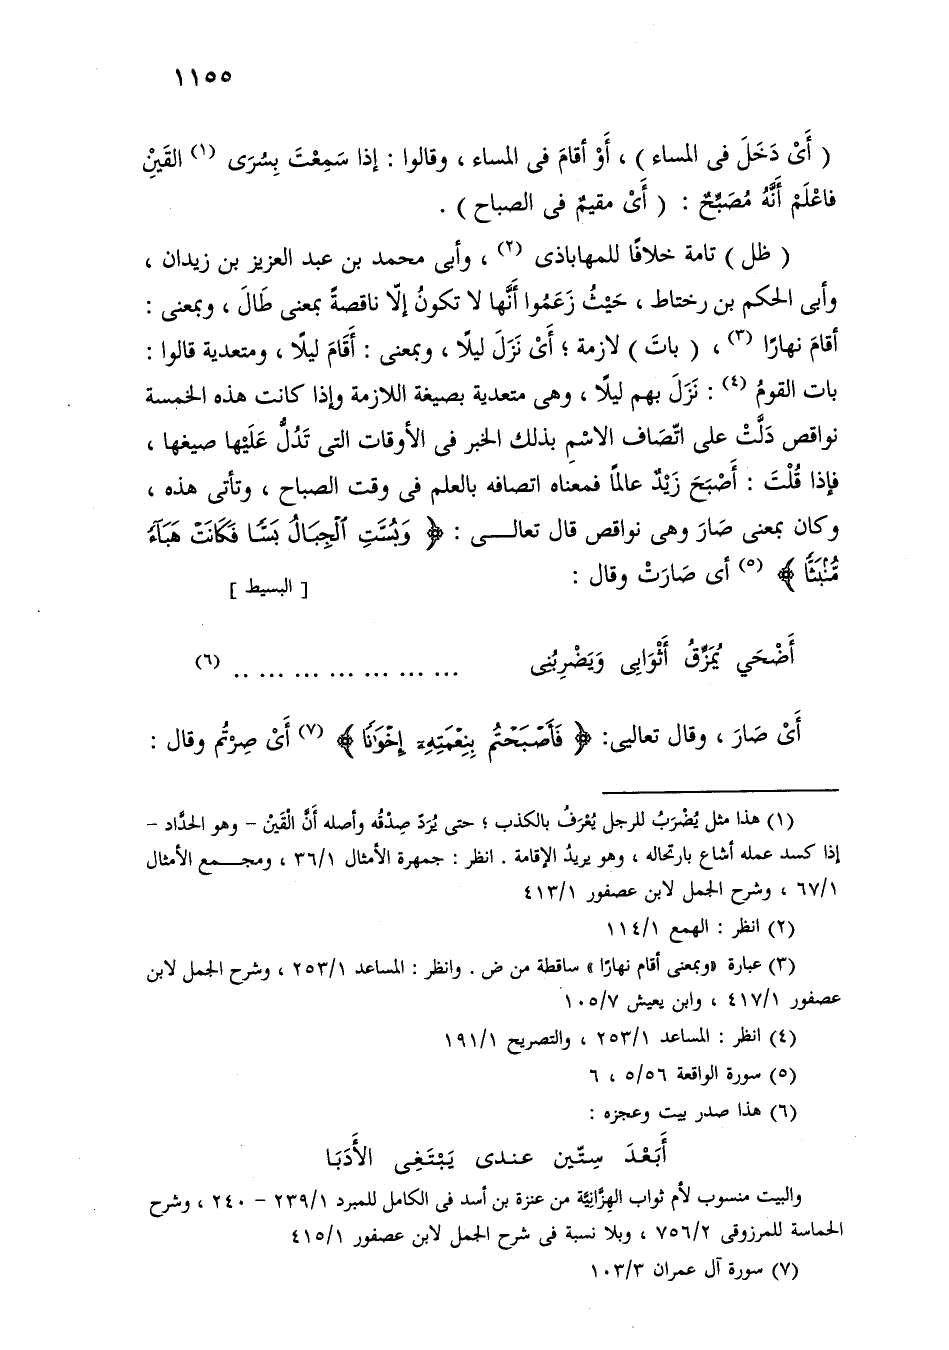 ١١٥٥
( أَىْ دَخَلَ فى المساء ) ، أَوْ أقامَ فى المساء ، وقالوا : إذا سَمِعْتَ بِسُرَى (١) القَيْنِ
فاعْلَمْ أَنَّهُ مُصَبِّحٌ : ( أَىْ مقيمٌ فى الصباح ) .
( ظل ) تامة خلافًا للمهاباذى (٢) ، وأبى محمد بن عبد العزيز بن زيدان ،
وأبى الحكم بن رختاط ، حَيْثُ زَعَمُوا أَنَّها لا تكونُ إلّا ناقصةً بمعنى طَالَ ، وبمعنى :
أقامَ نهارًا (٣) ، ( باتَ ) لازمة ؛ أَىْ نَزَلَ ليلًا ، وبمعنى : أَقَامَ ليلًا ، ومتعدية قالوا :
بات القومُ (٤) : نَزَلَ بهم ليلًا ، وهى متعدية بصيغة اللازمة وإذا كانت هذه الخمسة
نواقص دَلَّتْ على اتّصَاف الاسْمِ بذلك الخبر فى الأوقات التى تَدُلُّ عَلَيْها صيغها ،
فإذا قُلْتَ : أَصْبَحَ زَيْدٌ عالمًا فمعناه اتصافه بالعلم فى وقت الصباح ، وتأتى هذه ،
وكان بمعنى صَارَ وهى نواقص قال تعالــى : ﴿ وَبُسَّتِ ٱلْجِبَالُ بَسًّا فَكَانَتْ هَبَآءً
مُّنۢبَثًّا ﴾ (٥) أى صَارَتْ وقال :
[ البسيط ]
أَضْحَي يُمَزِّقُ أَثْوَابِى وَيَضْرِبُنِى ... ... ... ... ... ... .. (٦)
أَىْ صَارَ ، وقال تعاليى: ﴿ فَأَصْبَحْتُم بِنِعْمَتِهِۦٓ إِخْوَٰنًا ﴾ (٧) أَىْ صِرْتُم وقال :
(١) هذا مثل يُضْرَبُ للرجل يُعْرَفُ بالكذب ؛ حتى يُرَدّ صِدْقُه وأصله أَنَّ الْقَيْنَ – وهو الحدَّاد –
إذا كسد عمله أشاع بارتحاله ، وهو يريدُ الإقامة . انظر : جمهرة الأمثال ٣٦/١ ، ومجــمع الأمثال
٦٧/١ ، وشرح الجمل لابن عصفور ٤١٣/١
(٢) انظر : الهمع ١١٤/١
(٣) عبارة «وبمعنى أقام نهارًا » ساقطة من ض . وانظر : المساعد ٢٥٣/١ ، وشرح الجمل لابن
عصفور ٤١٧/١ ، وابن يعيش ١٠٥/٧
(٤) انظر : المساعد ٢٥٣/١ ، والتصريح ١٩١/١
(٥) سورة الواقعة ٥/٥٦ ، ٦
(٦) هذا صدر بيت وعجزه :
أَبَعْدَ سِتّين عندى يَبْتَغِى الأَدَبَا
والبيت منسوب لأم ثواب الهِزَّانِيَّة من عنزة بن أسد فى الكامل للمبرد ٢٣٩/١ – ٢٤٠ ، وشرح
الحماسة للمرزوقى ٧٥٦/٢ ، وبلا نسبة فى شرح الجمل لابن عصفور ٤١٥/١
(٧) سورة آل عمران ١٠٣/٣